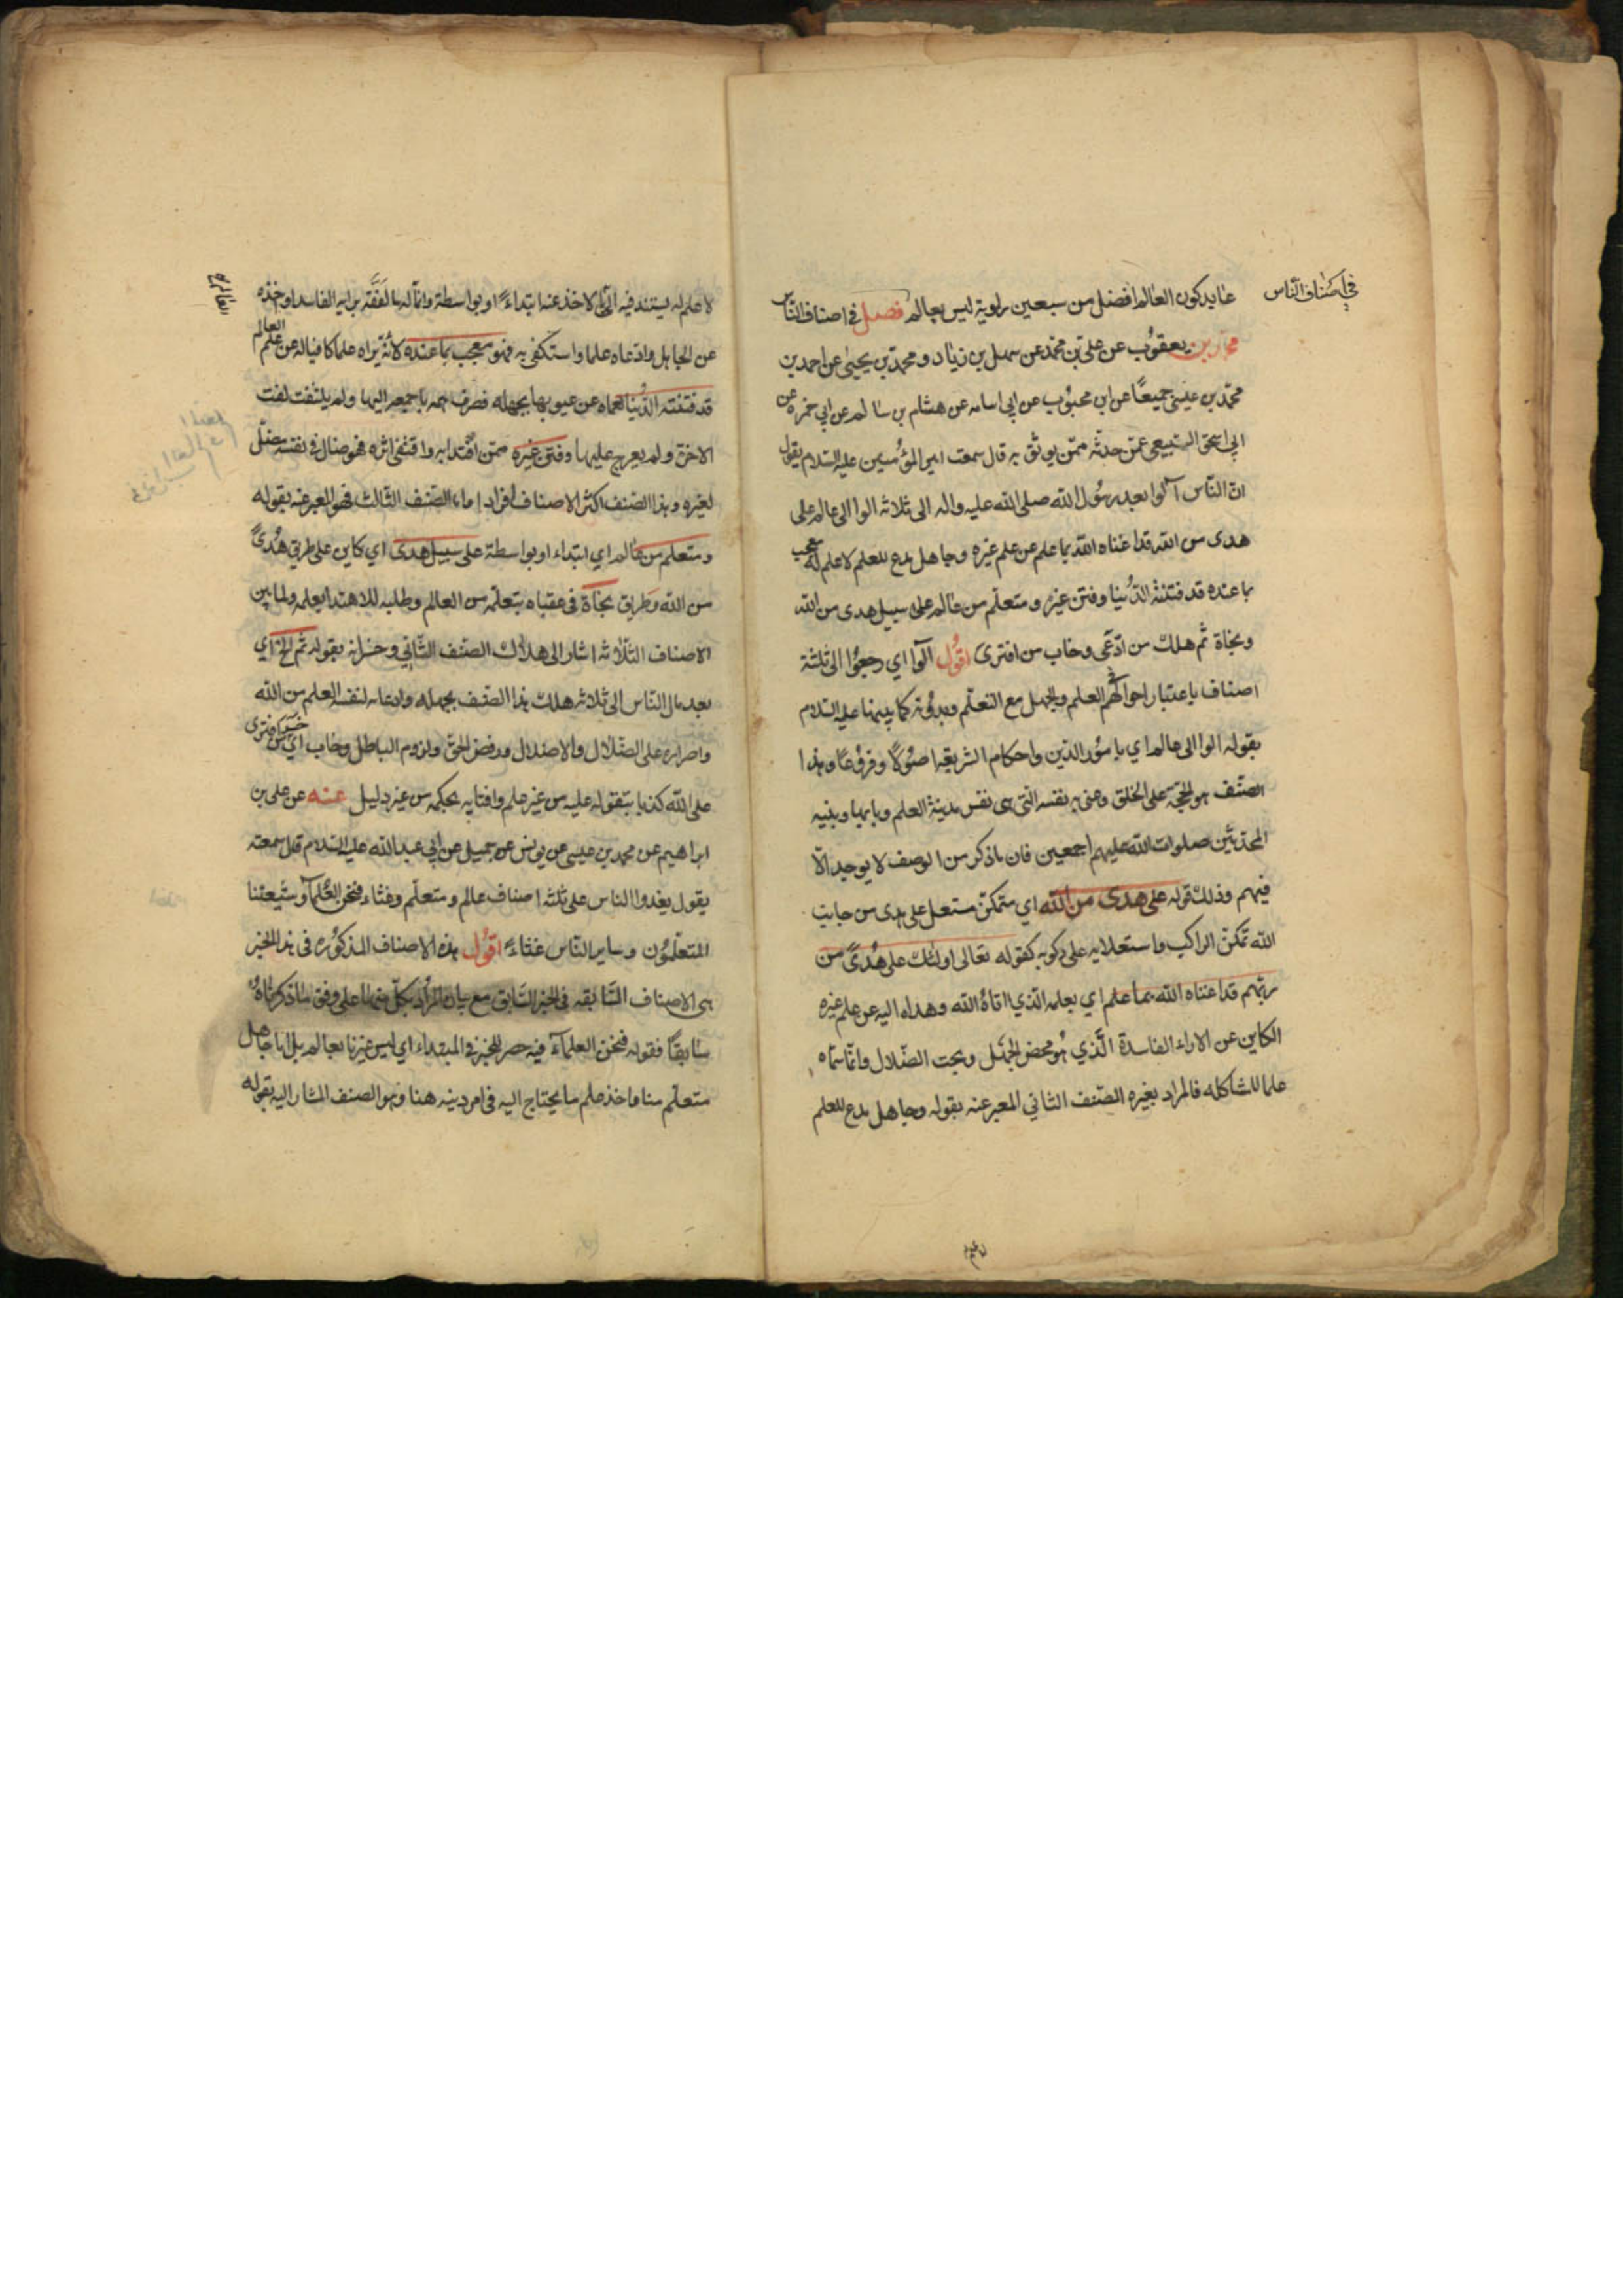 في اصناف الناس
عابد كون العالم افضل من سبعين راوية ليس بعالم فصل في اصناف الناس
محمد بن يعقوب عن علي بن محمد عن سهل بن زياد ومحمد بن يحيى عن احمد بن
محمد بن عيسى جميعًا عن ابن محبوب عن ابي اسامه عن هشام بن سالم عن ابي حمزه عن
ابي اسحق السبيعي عمن حدثه ممن يوثق به قال سمعت امير المؤمنين عليه السلام يقول
ان الناس آلوا بعد رسول الله صلى الله عليه واله الى ثلاثه الوا الى عالم على
هدى من الله قد اغناه الله بما علم عن علم غيره وجاهل مدع للعلم لا علم له معجب
بما عنده قد فتنته الدنيا وفتن غيره ومتعلم من عالم على سبيل هدى من الله
ونجاة ثم هلك من ادعى وخاب من افترى اقول آلوا اي رجعوا الى ثلثة
اصناف باعتبار احوالهم العلم والجهل مع التعلم وبدونه كما بينها عليه السلام
بقوله الوا الى عالم اي بامور الدين واحكام الشريعة اصولًا وفروعًا وهذا
الصنف هو الحجة على الخلق وعنى به نفسه التي هي نفس مدينة العلم وبابها وبنيه
المحدثين صلوات الله عليهم اجمعين فان ما ذكر من الوصف لا يوجد الا
فيهم وذلك قوله على هدى من الله اي متمكن مستعل على هدى من جانب
الله تمكن الراكب واستعلايه على ركوبه كقوله تعالى اولئك على هدًى من
ربهم قد اغناه الله بما علم اي بعلمه الذي اتاه الله وهداه اليه عن علم غيره
الكاين عن الاراء الفاسدة الذي هو محض الجهل وبحت الضلال وانما سماه
علما للمشاكله فالمراد بغيره الصنف الثاني المعبر عنه بقوله وجاهل مدع للعلم
لا علم له يستند فيه الى لاخذ عنه ابتداءً او بواسطة وانما له بالتفقه برايه الفاسد او اخذه
عن الجاهل وادعاه علما واستكفى به فهو معجب بما عنده لانه يراه علما كافيا له عن علم العالم
قد فتنته الدنيا لعماه عن عيوبها بجهله فصرف همه باجمعه اليها ولم يلتفت لفت
الاخرة ولم يعرج عليها وفتن غيره ممن اقتدا به واقتفى اثره فهو ضال في نفسه مضل
لغيره وهذا الصنف اكثر الاصناف افرادا واما الصنف الثالث فهو المعبر عنه بقوله
ومتعلم من عالم اي ابتداء او بواسطة على سبيل هدى اي كاين على طريق هدًى
من الله وطريق نجاة في عقباه بتعلمه من العالم وطلبه للاهتدا بعلمه ولما بين
الاصناف الثلاثه اشار الى هلاك الصنف الثاني وخسرانه بقوله ثم الخ اي
بعد مال الناس الى ثلاثه هلك هذا الصنف بجهله وادعائه لنفسه العلم من الله
واصراره على الضلال والاضلال ورفض الحق ولزوم الباطل وخاب اي خسر من افترى
على الله كذبا بتقوله عليه من غير علم وافتايه بحكمه من غير دليل عنه عن علي بن
ابراهيم عن محمد بن عيسى عن يونس عن جميل عن ابي عبد الله عليه السلام قال سمعته
يقول يغدوا الناس على ثلثه اصناف عالم ومتعلم وغثاء فنحن العلمآ وشيعتنا
المتعلمون وساير الناس غثاءً اقول هذه الاصناف المذكوره في هذا الخبر
هي الاصناف السابقه في الخبر السابق مع بيان المراد بكل منها على وفق ما ذكرناه
سابقًا فقوله فنحن العلمآء فيه حصر للخبر في المبتداء اي ليس غيرنا بعالم بل اما جاهل
متعلم منا ما اخذ علم ما يحتاج اليه في امر دينه هنا وهو الصنف المشار اليه بقوله
لا علم